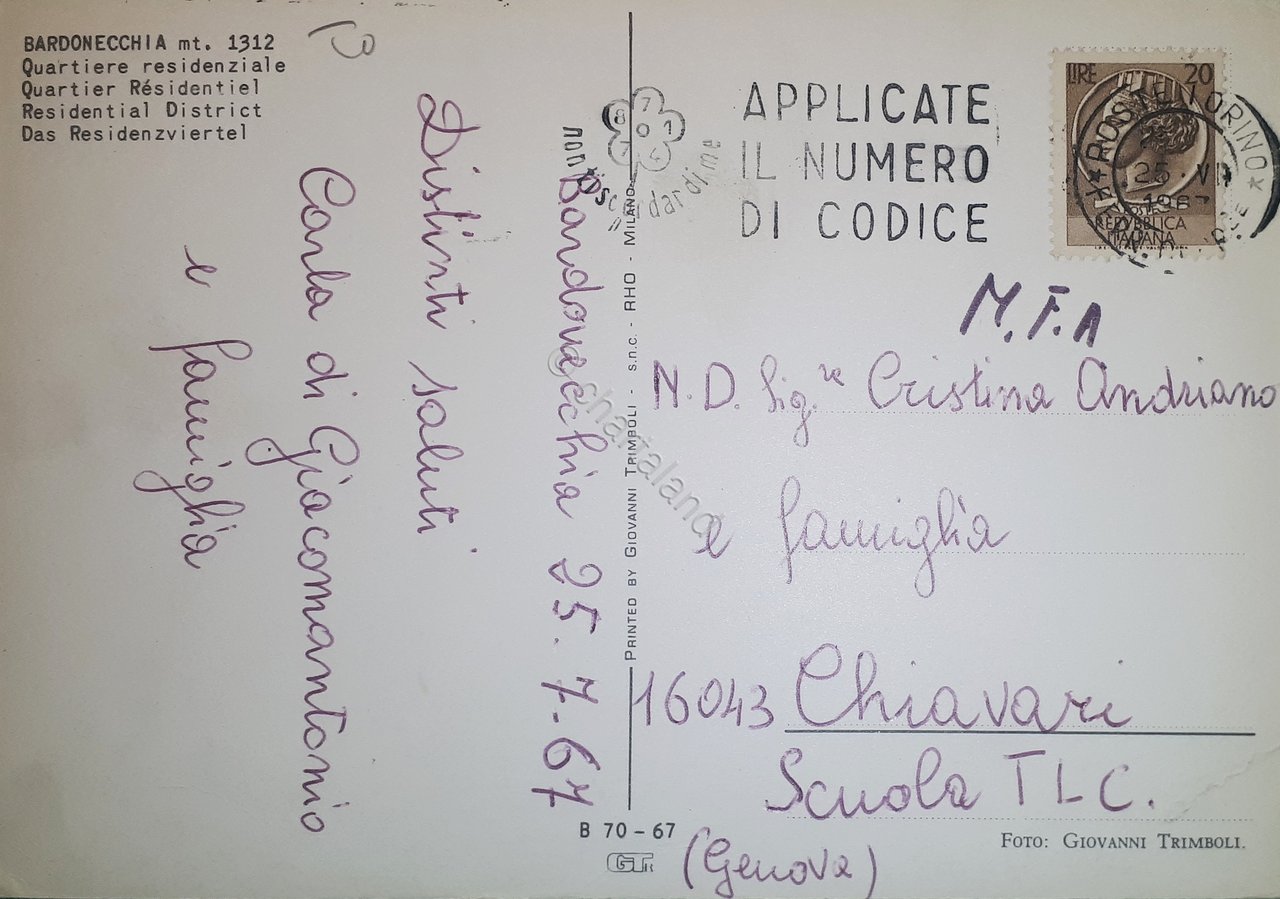 BARDONECCHIA mt. 1312
Quartiere residenziale
Quartier Résidentiel
Residential District
Das Residenzviertel
Bardonecchia 25.7.67
Distinti saluti
Carla di Giacomantonio
e famiglia
PRINTED BY GIOVANNI TRIMBOLI - s.n.c. - RHO - MILANO
B 70 - 67
GTR
non
dardime
APPLICATE
IL NUMERO
DI CODICE
LIRE 20
POSTE
REPVBBLICA
ITALIANA
POSTE TORINO
25 VII
M.F.A
N.D. Sig.re Cristina Andriano
e famiglia
16043 Chiavari
Scuola TLC.
(Genova)
FOTO: GIOVANNI TRIMBOLI.
© chartaland